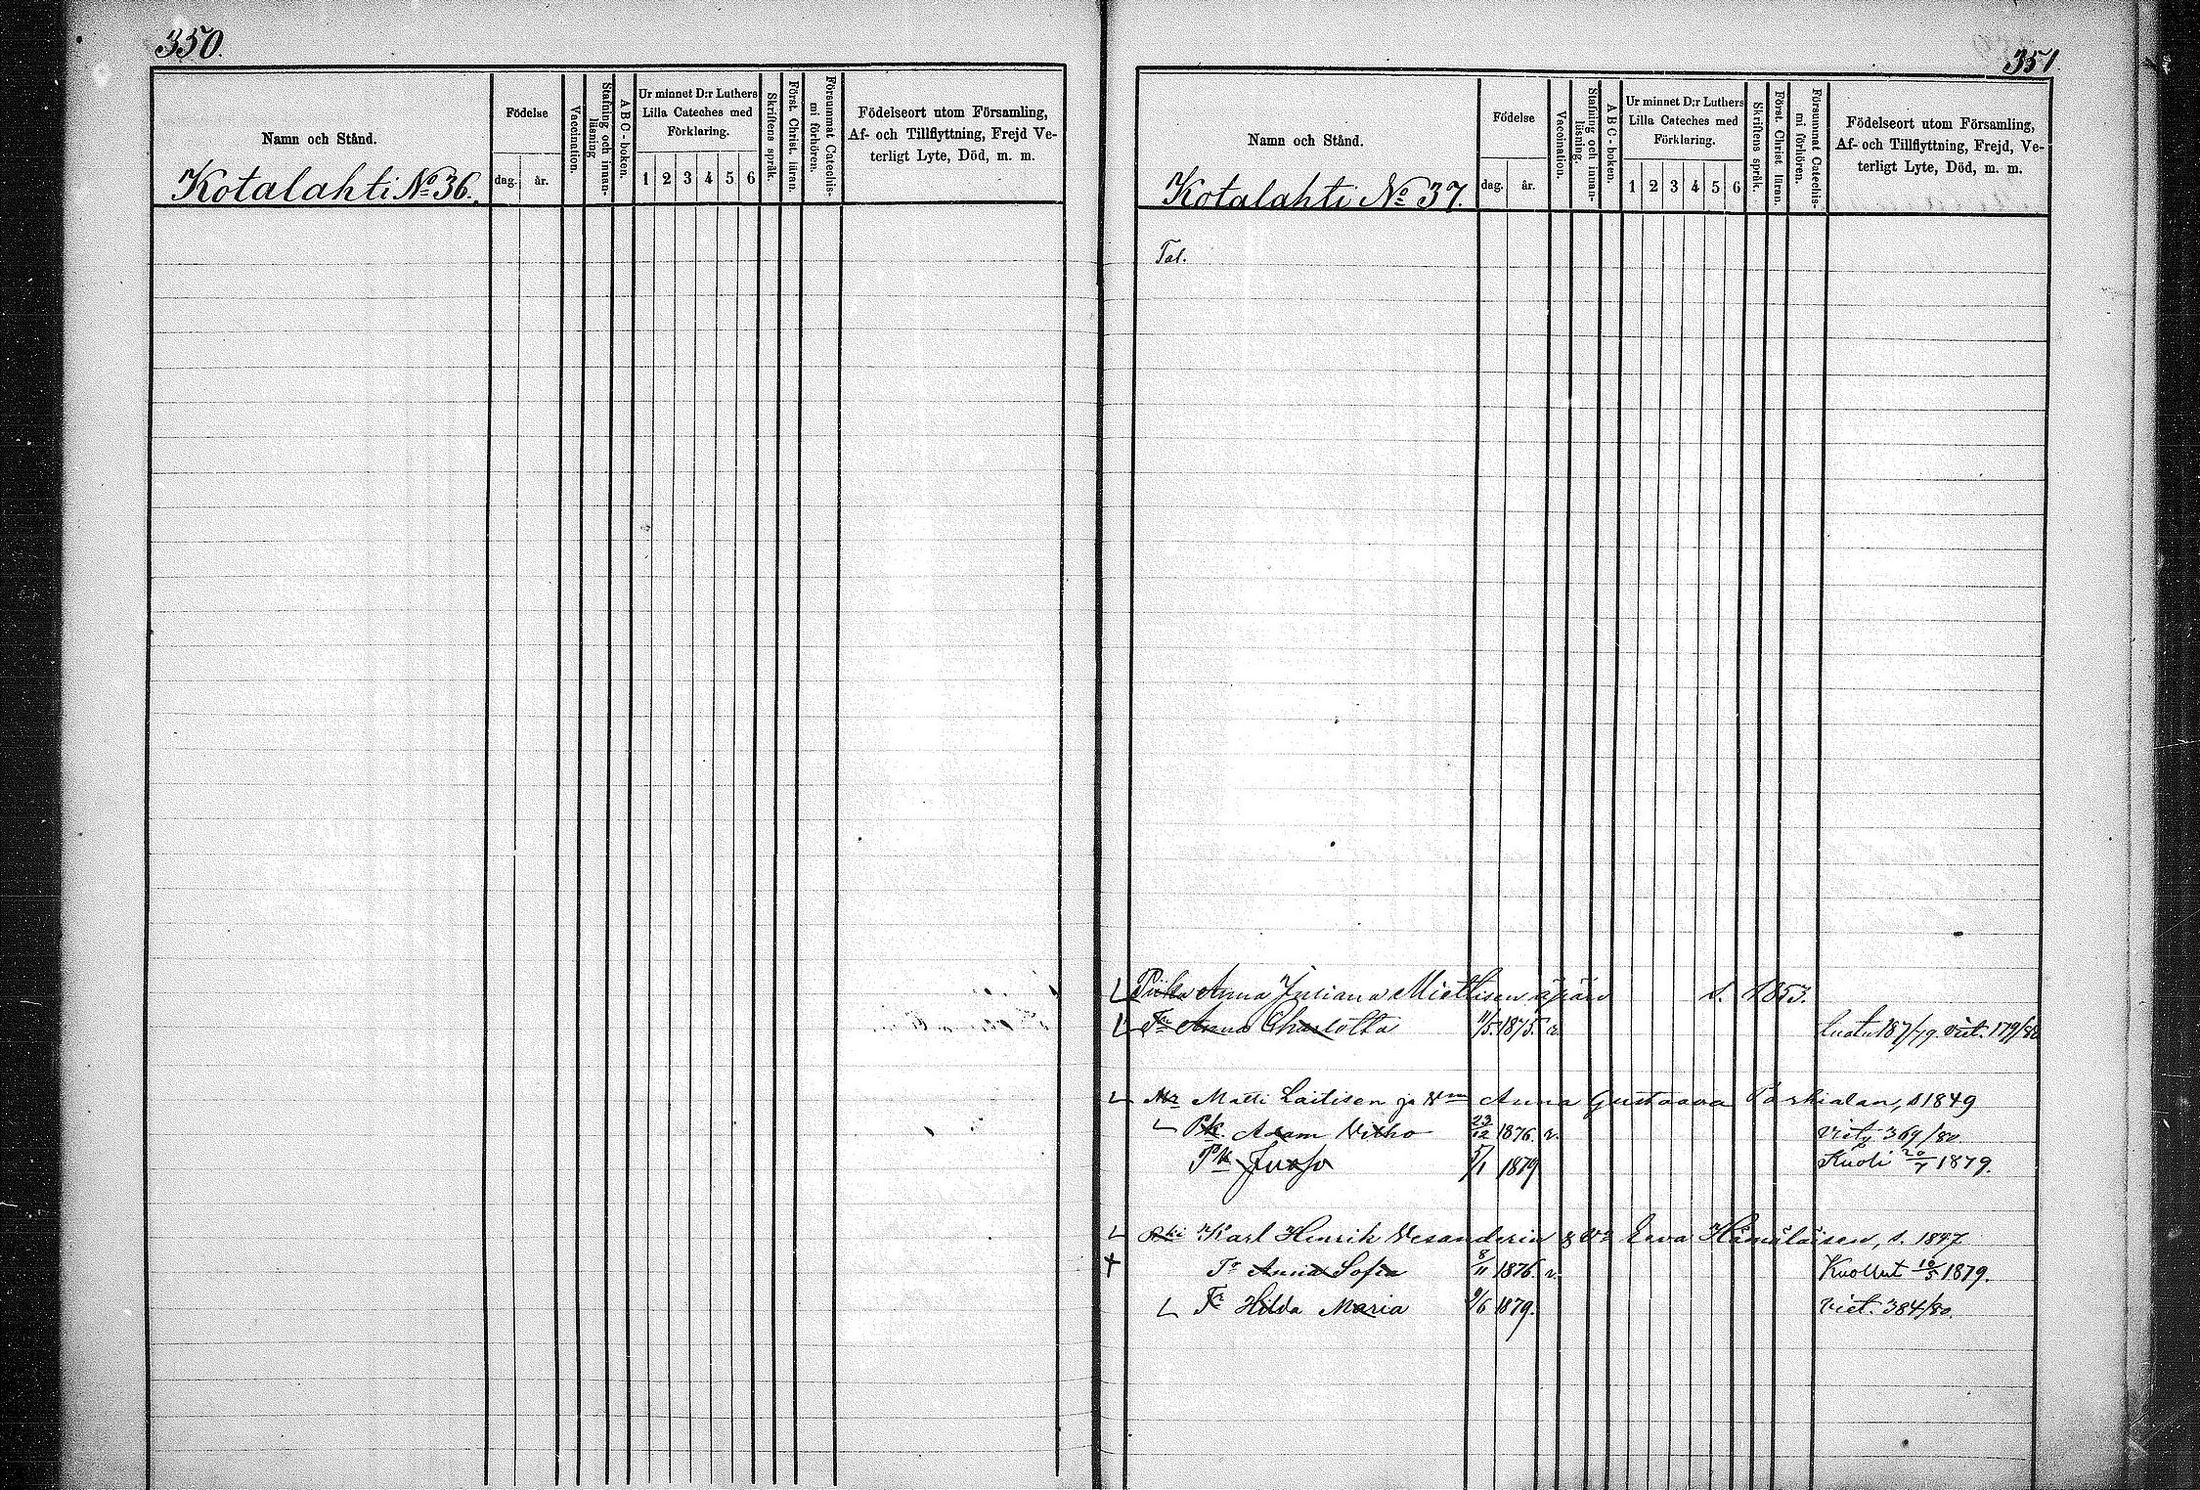 350.
Namn och Stånd.
Kotalahti No 36.
Födelse
dag.
år.
Vaccination.
Stafning och innan-
läsning
ABC-boken.
Ur minnet D:r Luthers
Lilla Cateches med
Förklaring.
1 2 3 4 5 6
Skriftens språk.
Först. Christ. läran.
Försummat Catechis-
mi förhören.
Födelseort utom Församling,
Af- och Tillflyttning, Frejd Ve-
terligt Lyte, Död, m. m.
351
Namn och Stånd.
Kotalahti No 37.
Födelse
dag.
år.
Vaccination.
Stafning och innan-
läsning.
ABC-boken.
Ur minnet D:r Luthers
Lilla Cateches med
Förklaring.
1 2 3 4 5 6
Skriftens språk.
Först. Christ läran.
Försummat Catechis-
mi förhören.
Födelseort utom Församling,
Af- och Tillflyttning, Frejd, Ve-
terligt Lyte, Död, m. m.
Tal.
Piika Anna Juliana Miettisen äpärä s. 1853.
Tr Anna Charlotta 11/5 1875. v. 187/79. viet. 179/80
Mr Matti Laitisen ja Vm Anna Gustaava s 1849
Pk. Adam Vilho 23/12 1876. v. viety 369/80.
Pk Juho 5/1 1879 Kuoli 20/7 1879.
Karl Henrik Vesanderin & Vo Eeva Hämäläisen, s. 1847
Tr Anna Sofia 8/11 1876. v. Kuollut 10/5 1879.
Tr Hilda Maria 9/6 1879. viet. 384/80.